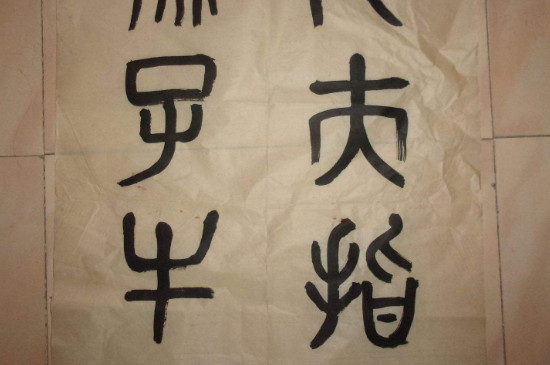 夫指
子牛